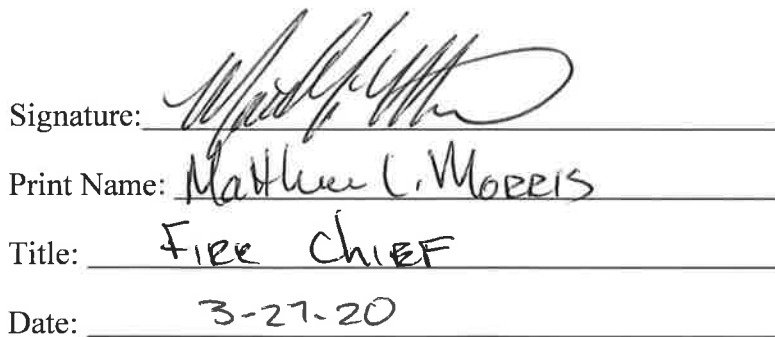 Signature:
Print Name: Matthew L. Morris
Title: Fire Chief
Date: 3-27-20